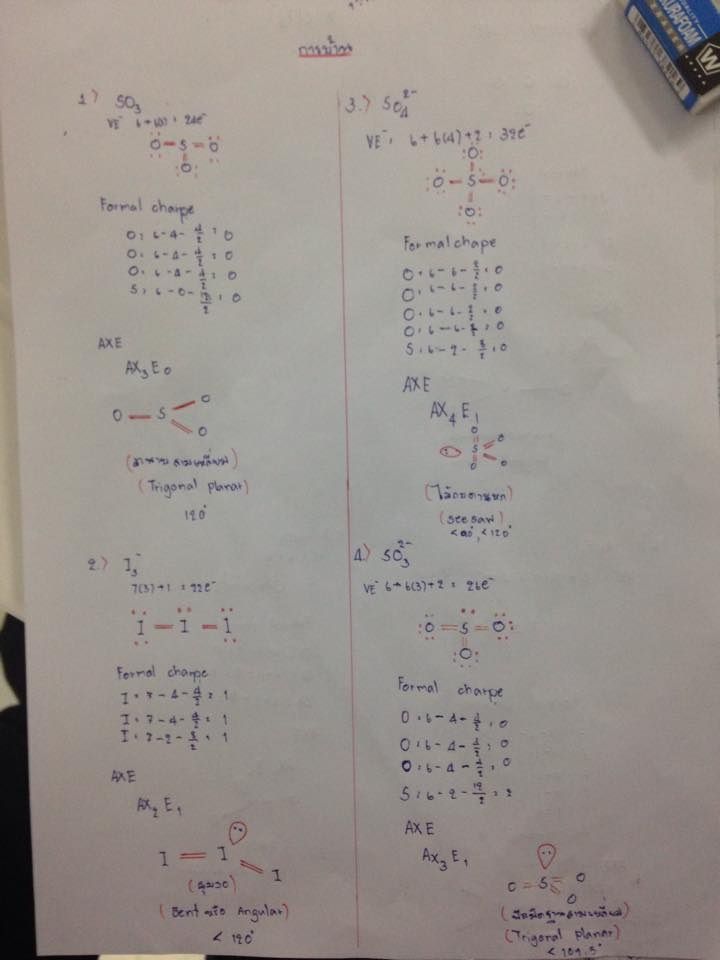 การบ้าน
1.) SO₃
VE⁻ 6+6(3) = 24e⁻
O=S=O
O
Formal charpe
O: 6-4-4/2 = 0
O: 6-4-4/2 = 0
O: 6-4-4/2 = 0
S: 6-0-12/2 = 0
AXE
AX₃E₀
O S O
O
(สามเหลี่ยม)
(Trigonal planar)
120°
2.) I₃⁻
7(3)+1 = 22e⁻
I=I=I
Formal charpe
I = 7-4-4/2 = 1
I = 7-4-4/2 = 1
I = 7-2-8/2 = 1
AXE
AX₂E₁
I=I
I
(มุมงอ)
(Bent หรือ Angular)
< 120°
3.) SO₄²⁻
VE⁻: 6+6(4)+2 = 32e⁻
O
O-S-O
O
Formal chape
O: 6-6-2/2 = 0
O: 6-6-2/2 = 0
O: 6-6-2/2 = 0
O: 6-6-2/2 = 0
S: 6-2-8/2 = 0
AXE
AX₄E₁
O
S O
O O
(ไม้กระดานหก)
(see saw)
< 90°, < 120°
4.) SO₃²⁻
VE⁻ 6+6(3)+2 = 26e⁻
O=S=O
O
Formal charpe
O: 6-4-4/2 = 0
O: 6-4-4/2 = 0
O: 6-4-4/2 = 0
S: 6-2-12/2 = 2
AXE
AX₃E₁
O=S O
O
(Trigonal planar)
< 109.5°
DURAFOAM
W